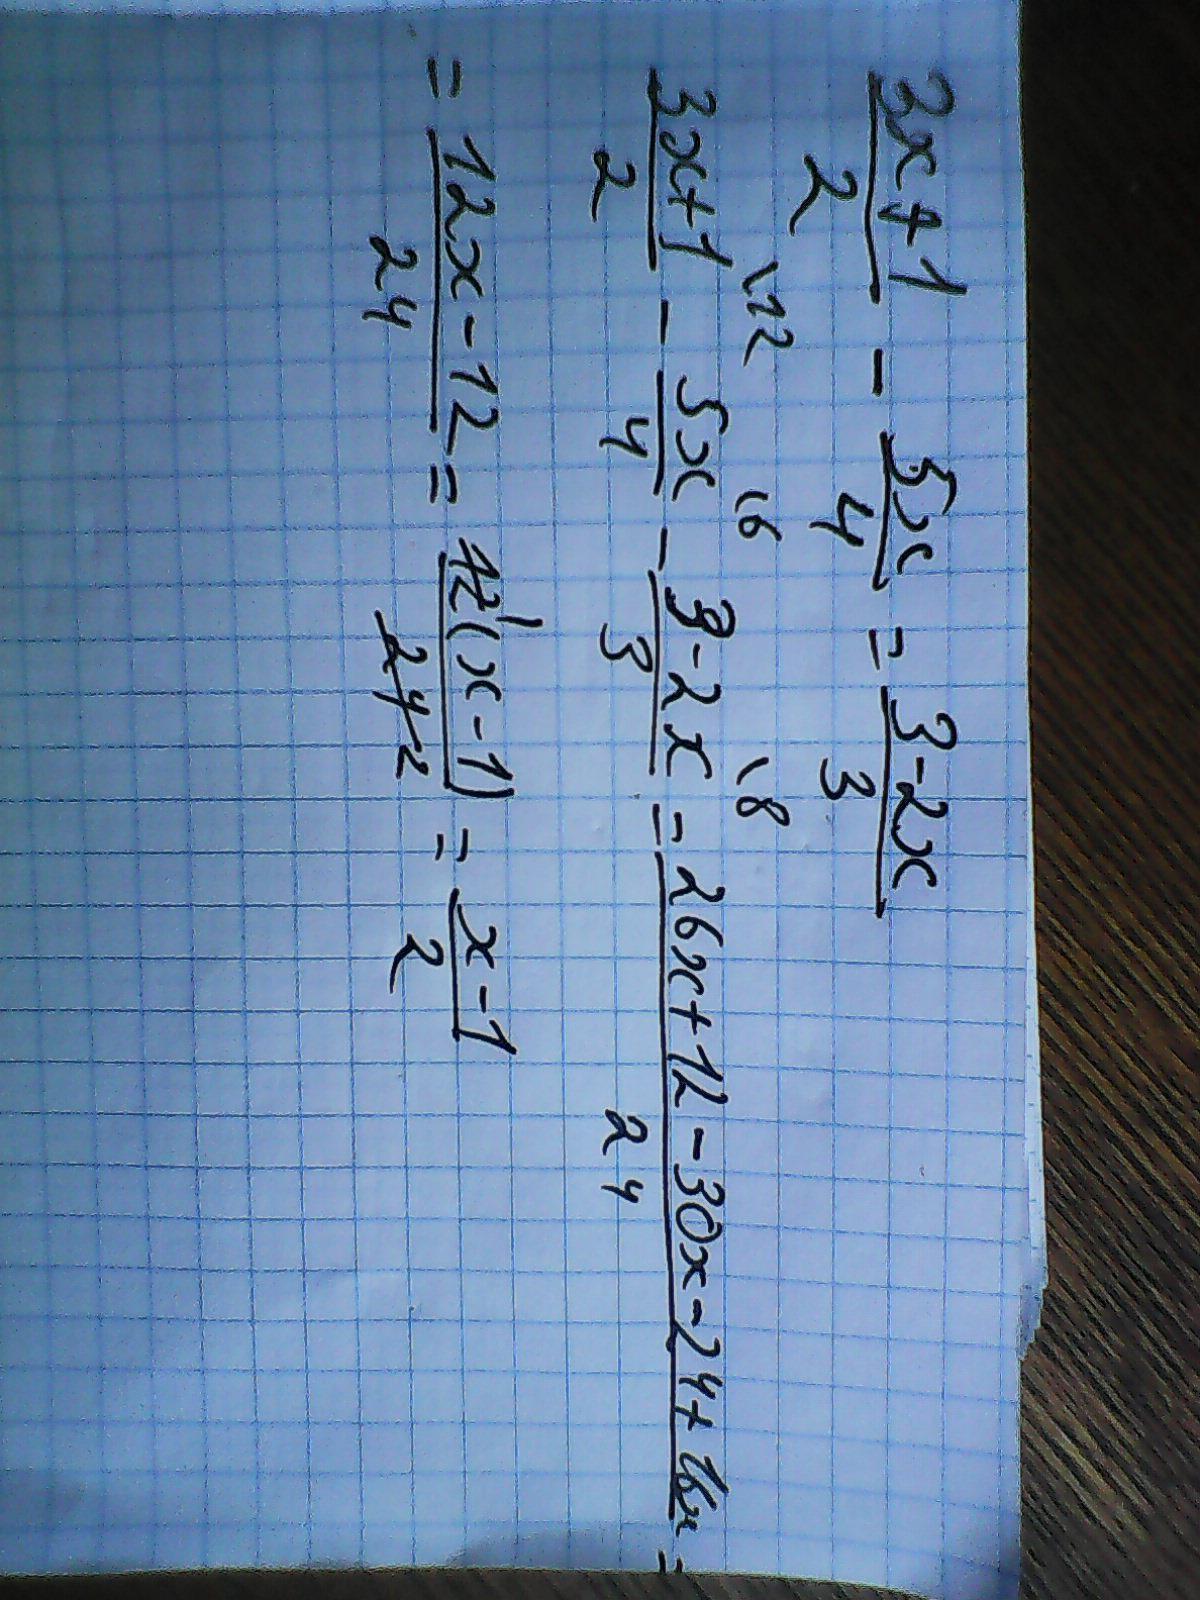 3x+1/2 - 5x/4 = 3-2x/3
3x+1\12/2 - 5x\6/4 - 3-2x\8/3 = 26x+12-30x-24+16x/24 =
= 12x-12/24 = 12¹(x-1)/24 2 = x-1/2